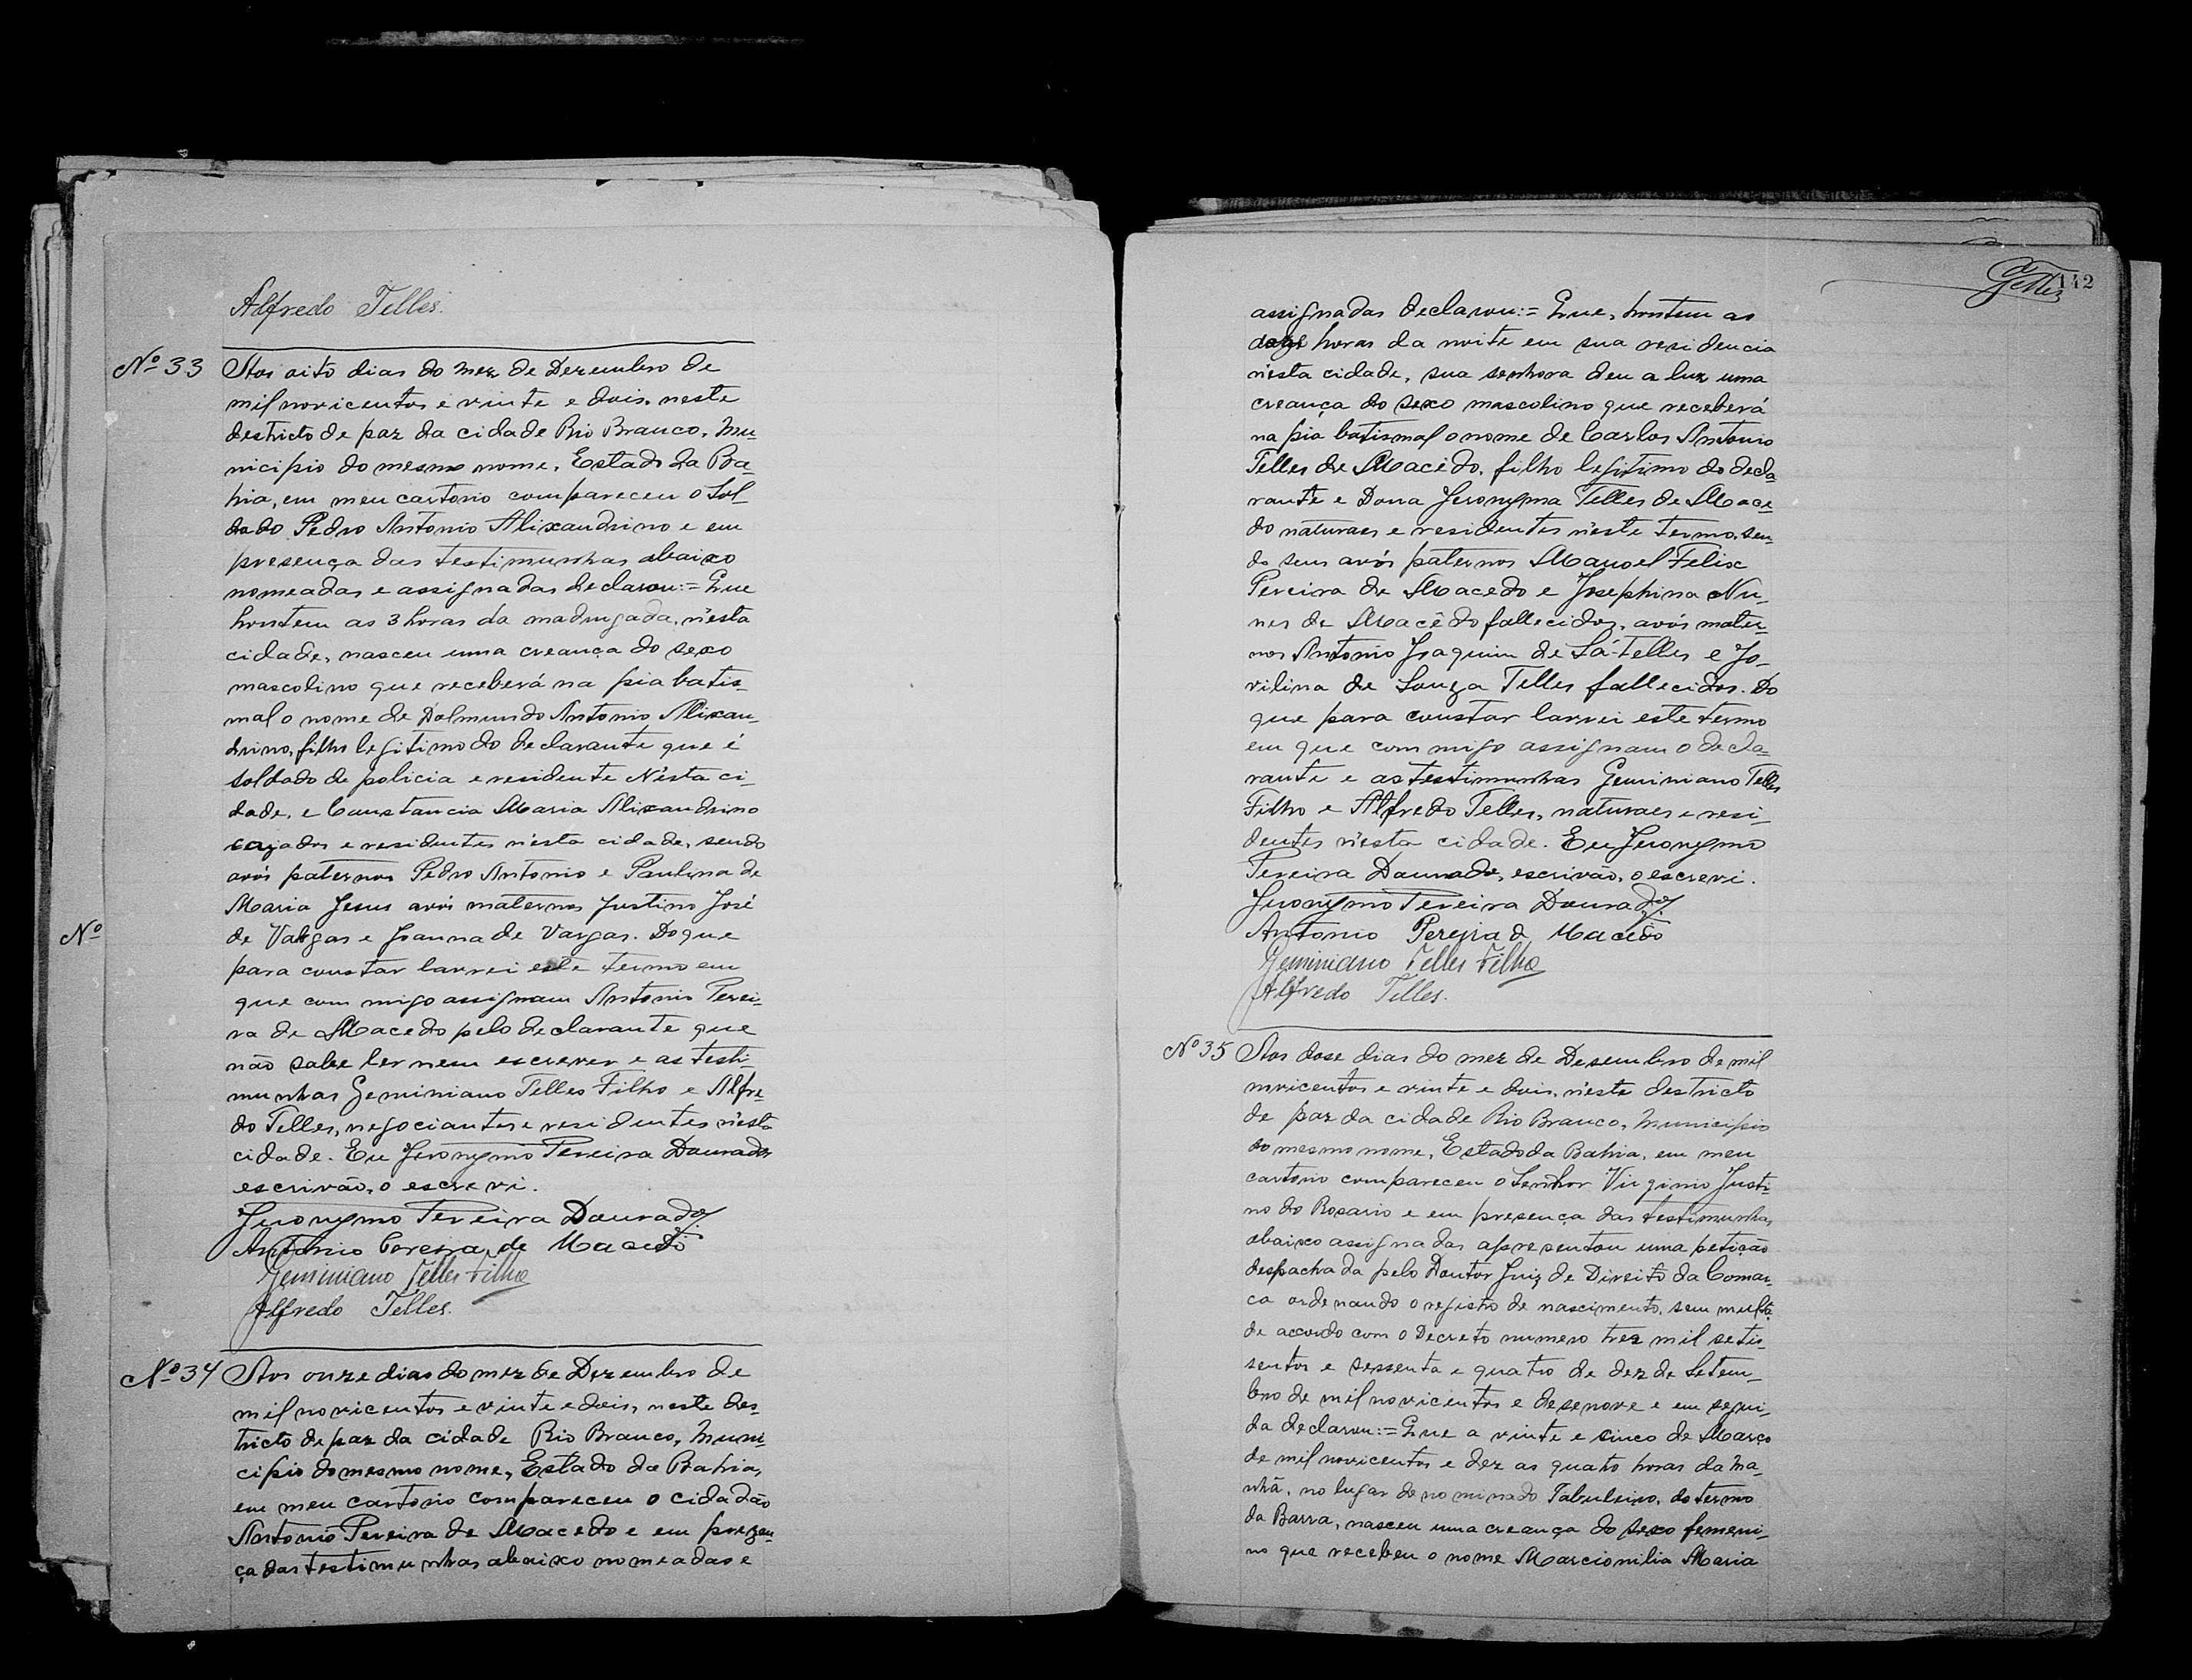 Alfredo Telles.
Nº 33 Aos oito dias do mez de Dezembro de
mil novicentos e vinte e dois, neste
destricto de paz da cidade Rio Branco, Mu-
nicipio do mesmo nome, Estado da Ba-
hia, em meu cartorio compareceu o Sol-
dado Pedro Antonio Alixandrino e em
presença das testimunhas abaixo
nomeadas e assignadas declarou:= Que
hontem as 3 horas da madrugada, n'esta
cidade, nasceu uma creança do sexo
mascolino que receberá na pia batis-
mal o nome de Dolmundo Antonio Alixan-
drino, filho legitimo do declarante que é
soldado de policia e residente N'esta ci-
dade, e Constancia Maria Alixandrino
cazados e residentes n'esta cidade, sendo
avós paternos Pedro Antonio e Paulina de
Maria Jesus avós maternos Justino José
Nº
de Vargas e Joanna de Vargas. Do que
para constar lavrei este termo em
que com migo assignam Antonio Perei-
ra de Macedo pelo declarante que
não sabe ler nem escrever e as testi-
munhas Geminiano Telles Filho e Alfre-
do Telles, negociantes e residentes n'esta
cidade. Eu Jeronymo Pereira Dourado,
escrivão, o escrevi.
Jeronymo Pereira Dourado,
Antonio Pereira de Macedo
Geminiano Telles Filho
Alfredo Telles.
Nº 34 Aos onze dias do mez de Dezembro de
mil novicentos e vinte e dois, neste des-
tricto de paz da cidade Rio Branco, Muni-
cipio do mesmo nome, Estado da Bahia,
em meu cartorio compareceu o cidadão
Antonio Pereira de Macedo e em prezen-
ça das testimunhas abaixo nomeadas e
Telles 142
assignadas declarou:= Que, hontem as
horas da noite em sua residencia
n'esta cidade, sua senhora deu a luz uma
creança do sexo mascolino que receberá
na pia batismal o nome de Carlos Antonio
Telles de Macêdo, filho legitimo do decla-
rante e Dona Jeronyma Telles de Mace-
do naturaes e residentes n'este termo, sen-
do seus avós paternos Manoel Felix
Pereira de Macedo e Josephina Nu-
nes de Macêdo fallecidos, avós mater-
nos Antonio Joaquim de Sá-Telles e Jo-
vilina de Souza Telles fallecidos. Do
que para constar lavrei este termo
em que com migo assignam o decla-
rante e as testimunhas Geminiano Telles
Filho e Alfredo Telles, naturaes e resi-
dentes n'esta cidade. Eu Jeronymo
Pereira Dourado, escrivão, o escrevi.
Jeronymo Pereira Dourado,
Antonio Pereira d Macedo
Geminiano Telles Filho
Alfredo Telles.
Nº 35 Aos dose dias do mez de Desembro de mil
novicentos e vinte e dois, n'este destricto
de paz da cidade Rio Branco, Municipio
do mesmo nome, Estado da Bahia, em meu
cartorio compareceu o Senhor Virginio Justi-
no do Rosario e em presença das testimunhas
abaixo assignadas apresentou uma petição
despachada pelo Doutor Juiz de Direito da Comar-
ca ordenando o registro de nascimento, sem multa
de accordo com o Decreto numero trez mil setis-
sentos e sessenta e quatro de dez de Setem-
bro de mil novicentos e desenove e em segui-
da declarou:= Que a vinte e cinco de Março
de mil novicentos e dez as quatro horas da ma-
nhã, no lugar denominado Tabuleiro, do termo
da Barra, nasceu uma creança do sexo femeni-
no que recebeu o nome Marcionilia Maria